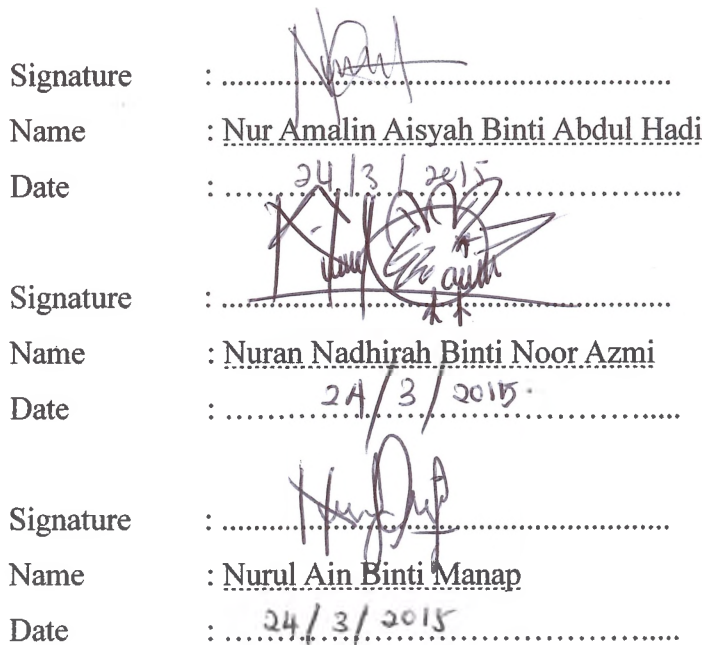 Signature : ........................................................
Name : Nur Amalin Aisyah Binti Abdul Hadi
Date : 24/3/2015
Signature : ........................................................
Name : Nuran Nadhirah Binti Noor Azmi
Date : 24/3/2015.
Signature : ........................................................
Name : Nurul Ain Binti Manap
Date : 24/3/2015